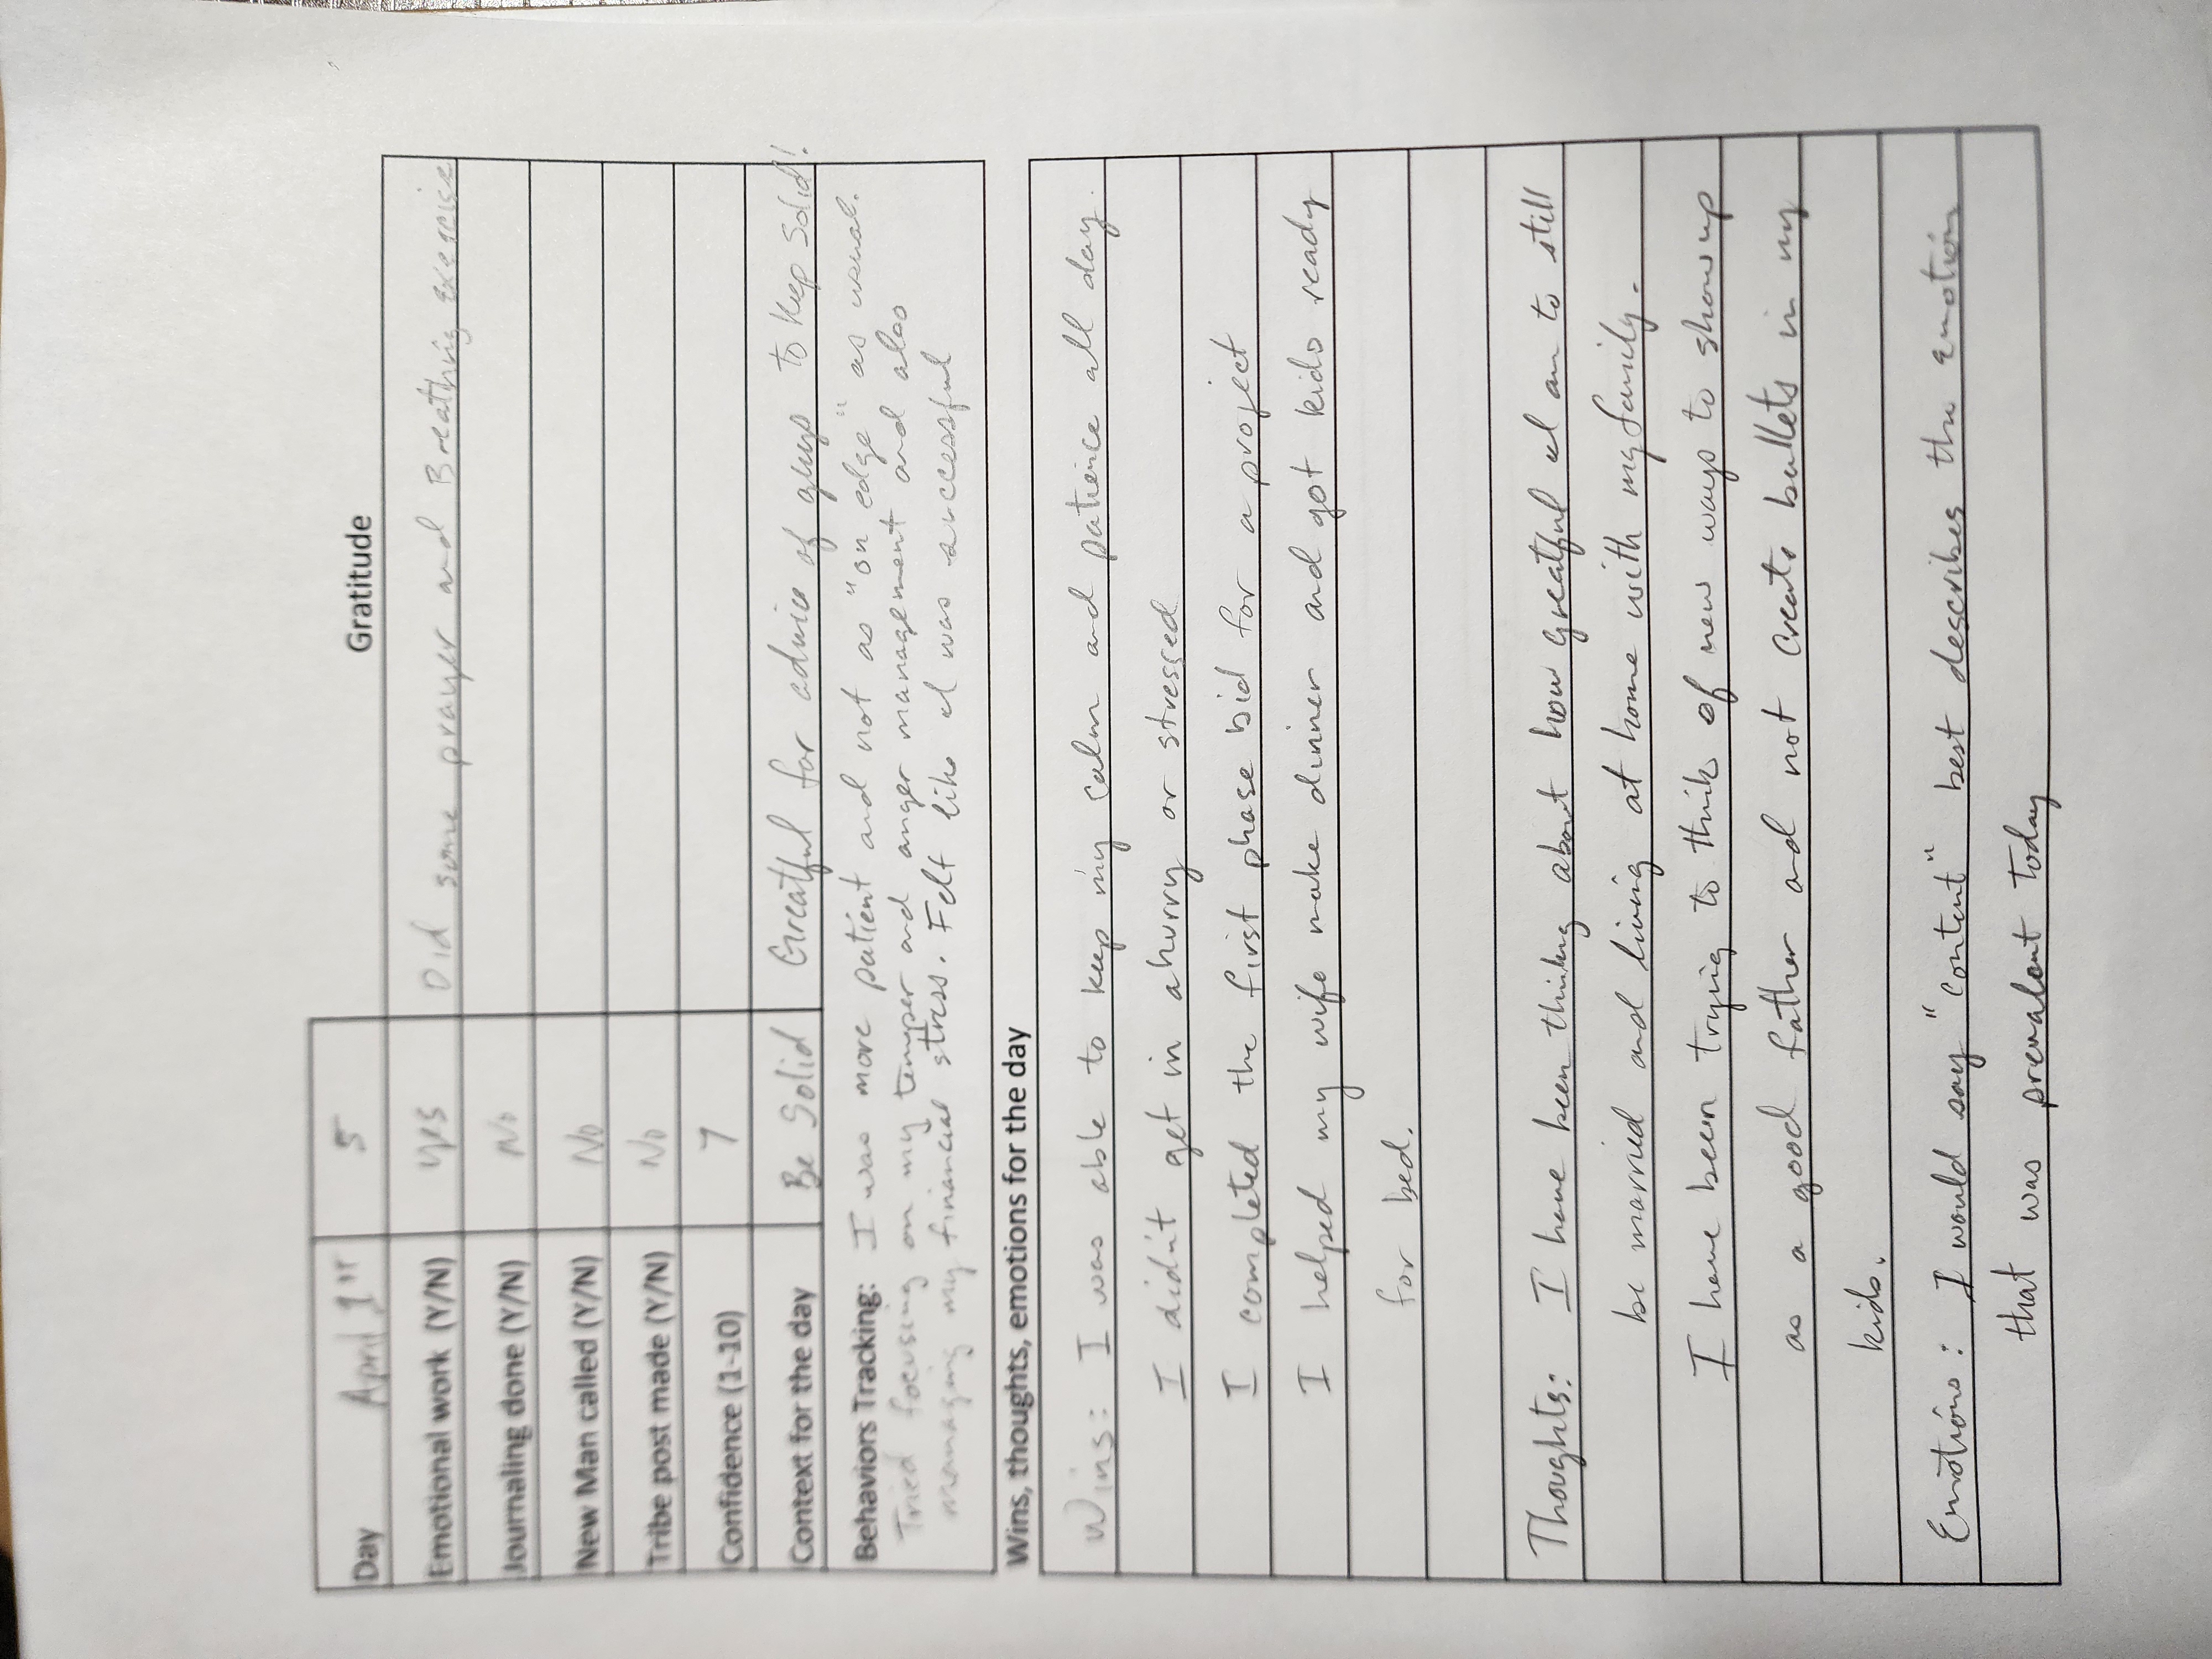 Gratitude
Day April 1st 5
Emotional work (Y/N) yes Did some prayer and Breathing exercise
Journaling done (Y/N) No
New Man called (Y/N) No
Tribe post made (Y/N) No
Confidence (1-10) 7
Context for the day Be Solid Greatful for advice of guys to keep solid!
Behaviors Tracking: I was more patient and not as "on edge" as usual.
Tried focusing on my temper and anger management and also
managing my financial stress. Felt like I was successful
Wins, thoughts, emotions for the day
Wins: I was able to keep my calm and patience all day.
I didn't get in a hurry or stressed
I completed the first phase bid for a project
I helped my wife make dinner and got kids ready
for bed.
Thoughts: I have been thinking about how greatful I am to still
be married and living at home with my family.
I have been trying to think of new ways to show up
as a good father and not create bullets in my
kids.
Emotions: I would say "content" best describes the emotion
that was prevalent today